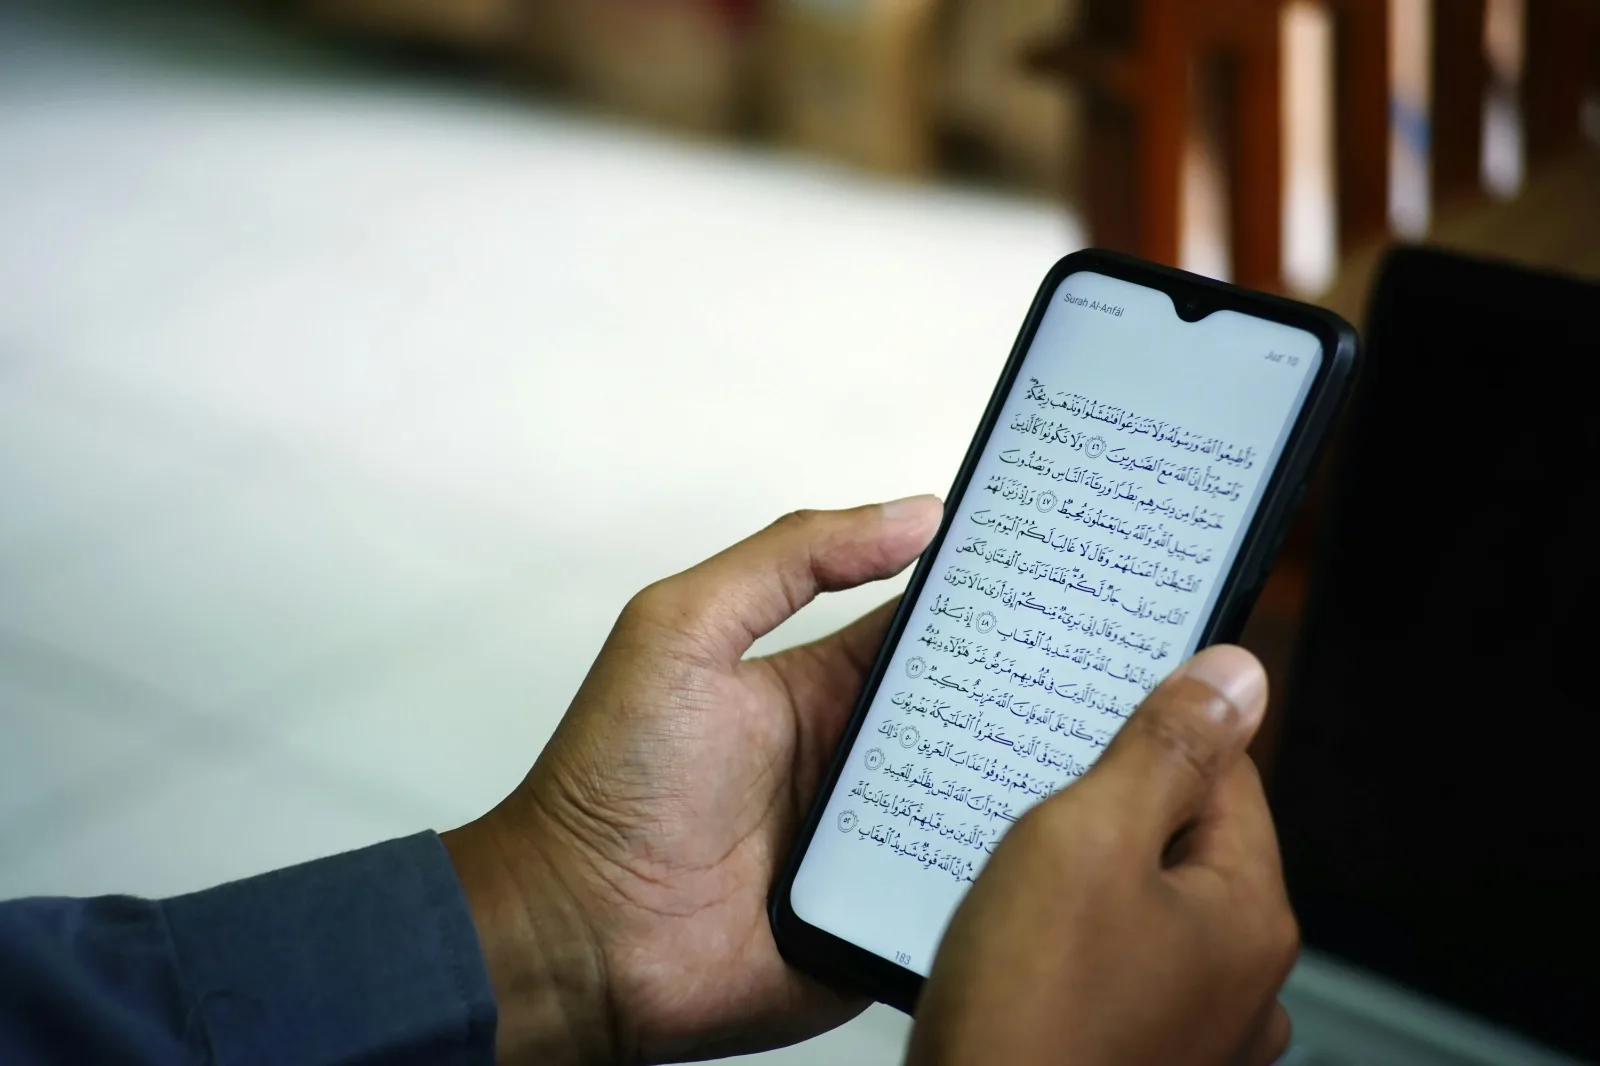 Surah Al-Anfāl
Juz' 10
وَأَطِيعُوا۟ ٱللَّهَ وَرَسُولَهُۥ وَلَا تَنَـٰزَعُوا۟ فَتَفْشَلُوا۟ وَتَذْهَبَ رِيحُكُمْ ۖ
وَٱصْبِرُوٓا۟ ۚ إِنَّ ٱللَّهَ مَعَ ٱلصَّـٰبِرِينَ ٤٦ وَلَا تَكُونُوا۟ كَٱلَّذِينَ
خَرَجُوا۟ مِن دِيَـٰرِهِم بَطَرًا وَرِئَآءَ ٱلنَّاسِ وَيَصُدُّونَ
عَن سَبِيلِ ٱللَّهِ ۚ وَٱللَّهُ بِمَا يَعْمَلُونَ مُحِيطٌ ٤٧ وَإِذْ زَيَّنَ لَهُمُ
ٱلشَّيْطَـٰنُ أَعْمَـٰلَهُمْ وَقَالَ لَا غَالِبَ لَكُمُ ٱلْيَوْمَ مِنَ
ٱلنَّاسِ وَإِنِّى جَارٌ لَّكُمْ ۖ فَلَمَّا تَرَآءَتِ ٱلْفِئَتَانِ نَكَصَ
عَلَىٰ عَقِبَيْهِ وَقَالَ إِنِّى بَرِىٓءٌ مِّنكُمْ إِنِّىٓ أَرَىٰ مَا لَا تَرَوْنَ
أَخَافُ ٱللَّهَ ۚ وَٱللَّهُ شَدِيدُ ٱلْعِقَابِ ٤٨ إِذْ يَقُولُ
وَٱلَّذِينَ فِى قُلُوبِهِم مَّرَضٌ غَرَّ هَـٰٓؤُلَآءِ دِينُهُمْ ۗ
عَلَى ٱللَّهِ فَإِنَّ ٱللَّهَ عَزِيزٌ حَكِيمٌ ٤٩
إِذْ يَتَوَفَّى ٱلَّذِينَ كَفَرُوا۟ ۙ ٱلْمَلَـٰٓئِكَةُ يَضْرِبُونَ
وَأَدْبَـٰرَهُمْ وَذُوقُوا۟ عَذَابَ ٱلْحَرِيقِ ٥٠ ذَٰلِكَ
وَأَنَّ ٱللَّهَ لَيْسَ بِظَلَّـٰمٍ لِّلْعَبِيدِ ٥١
وَٱلَّذِينَ مِن قَبْلِهِمْ ۚ كَفَرُوا۟ بِـَٔايَـٰتِ ٱللَّهِ
إِنَّ ٱللَّهَ قَوِىٌّ شَدِيدُ ٱلْعِقَابِ ٥٢
183